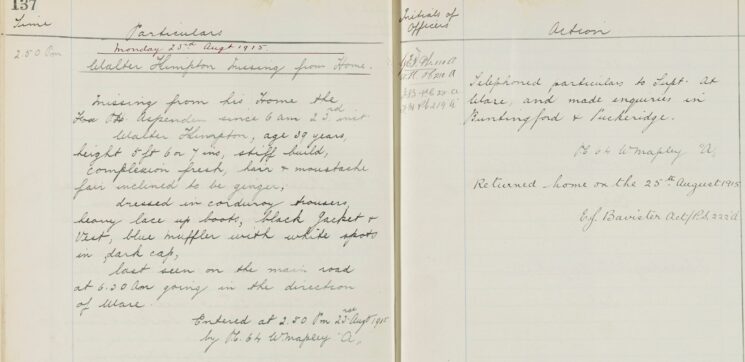 137
Time
Particulars
Monday 23rd Augt 1915.
2.50 Pm
Walter Kimpton missing from Home.
Missing from his Home the
Fox PH Aspenden since 6 am 23rd inst
Walter Kimpton, age 39 years,
height 5 ft 6 or 7 ins, stiff build,
complexion fresh, hair & moustache
fair inclined to be ginger,
dressed in corduroy trousers,
heavy lace up boots, black Jacket &
Vest, blue muffler with white spots
in dark cap,
last seen on the main road
at 6.30 Am going in the direction
of Ware.
Entered at 2.50 Pm 23rd Augt 1915
by Pc. 64 W Mapley "A",
Initials of
Officers
Action
Telephoned particulars to Supt. at
Ware, and made enquiries in
Buntingford & Puckeridge.
Pc 64 W Mapley "A",
Returned home on the 25th August 1915
E.J. Bavister Act/P.S. 222 A